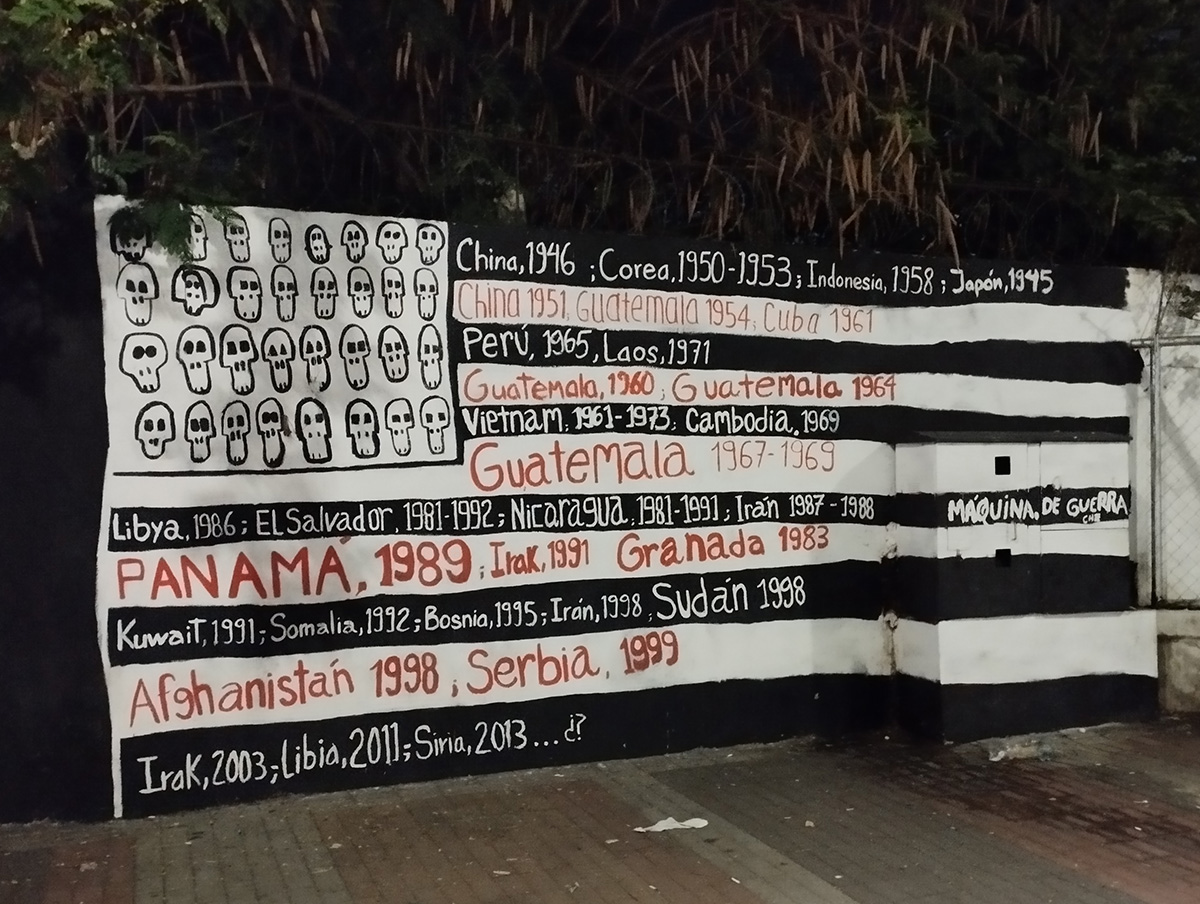 China, 1946 ; Corea, 1950-1953; Indonesia, 1958 ; Japón, 1945
China 1951, Guatemala 1954, Cuba 1961
Perú, 1965, Laos, 1971
Guatemala, 1960 ; Guatemala 1964
Vietnam, 1961-1973, Cambodia, 1969
Guatemala 1967-1969
Libya, 1986; EL Salvador, 1981-1992; Nicaragua, 1981-1991, Irán 1987-1988
MÁQUINA, DE GUERRA
CHE
PANAMÁ, 1989 ; Irak, 1991 Granada 1983
Kuwait, 1991; Somalia, 1992; Bosnia, 1995; Irán, 1998, Sudán 1998
Afghanistán 1998 ; Serbia, 1999
Irak, 2003; Libia, 2011; Siria, 2013... ¿?